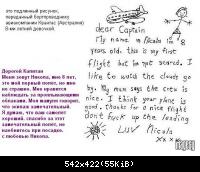 это подлинный рисунок,
переданный бортпроводнику
авиакомпании Квантас (Австралия)
8-ми летней девочкой.
Дорогой Капитан
Меня зовут Никола, мне 8 лет,
это мой первый полет, но мне
не страшно. Мне нравится
наблюдать за проплывающими
облаками. Моя мамуля говорит,
что экипаж замечательный.
Я думаю, что ваш самолет
хороший. спасибо за этот
замечательный полет, не
наебнитесь при посадке.
с любовью Никола.
dear Captain
My name is Nicola im 8
years old, this is my first
flight but im not scared. I
like to watch the clouds go
by. My mum says the crew is
nice. I think your plane is
good. thanks for a nice flight
dont fuck up the landing
LUV Nicola
XXXX
542x422(55KiB)